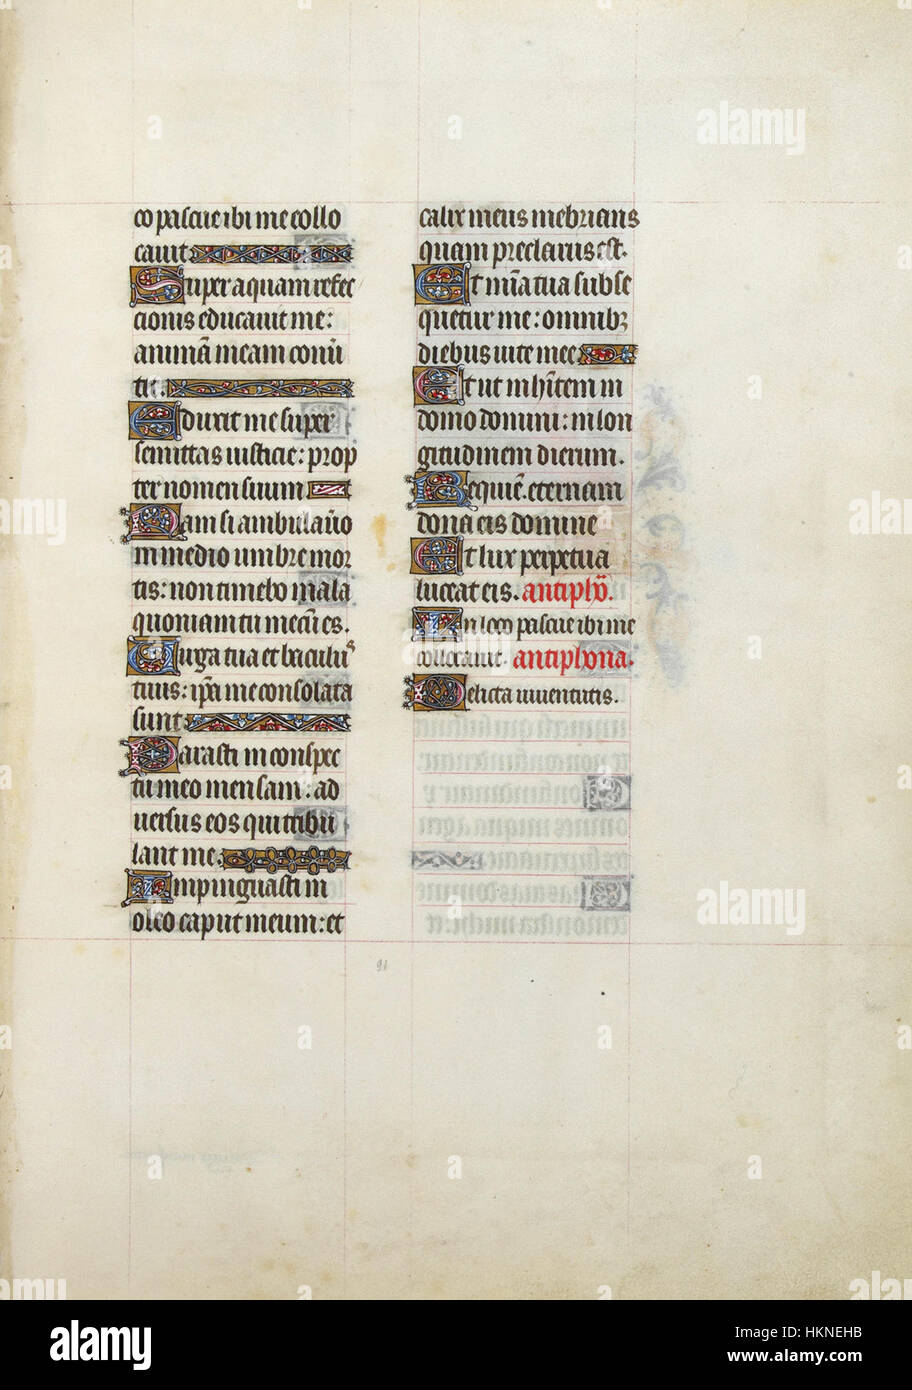 co pascue ibi me collo
cauit
Super aquam refec
cionis educauit me:
animā meam conu̅
tit.
Eduxit me super
semittas iusticie: prop
ter nomen suum
Nam si ambulau̅o
in medio umbre mor
tis: non timebo mala
quoniam tu mecū es.
Uirga tua et baculus
tuus: ip̄a me consolata
sunt
Parasti in conspec
tu meo mensam: ad
uersus eos qui tribu
lant me
Inpinguasti in
oleo caput meum: et
calix meus inebrians
quam preclarus est.
Et mīa tua subse
quetur me: omnibꝫ
diebus uite mee
Et ut inhītem in
domo domini: in lon
gitudinem dierum.
Requiē. eternam
dona eis domine
Et lux perpetua
luceat eis. antiphō.
In loco pascue ibi me
collocauit. antiphona.
Delicta iuuentutis.
91
alamy
alamy stock photo
HKNEHB
www.alamy.com